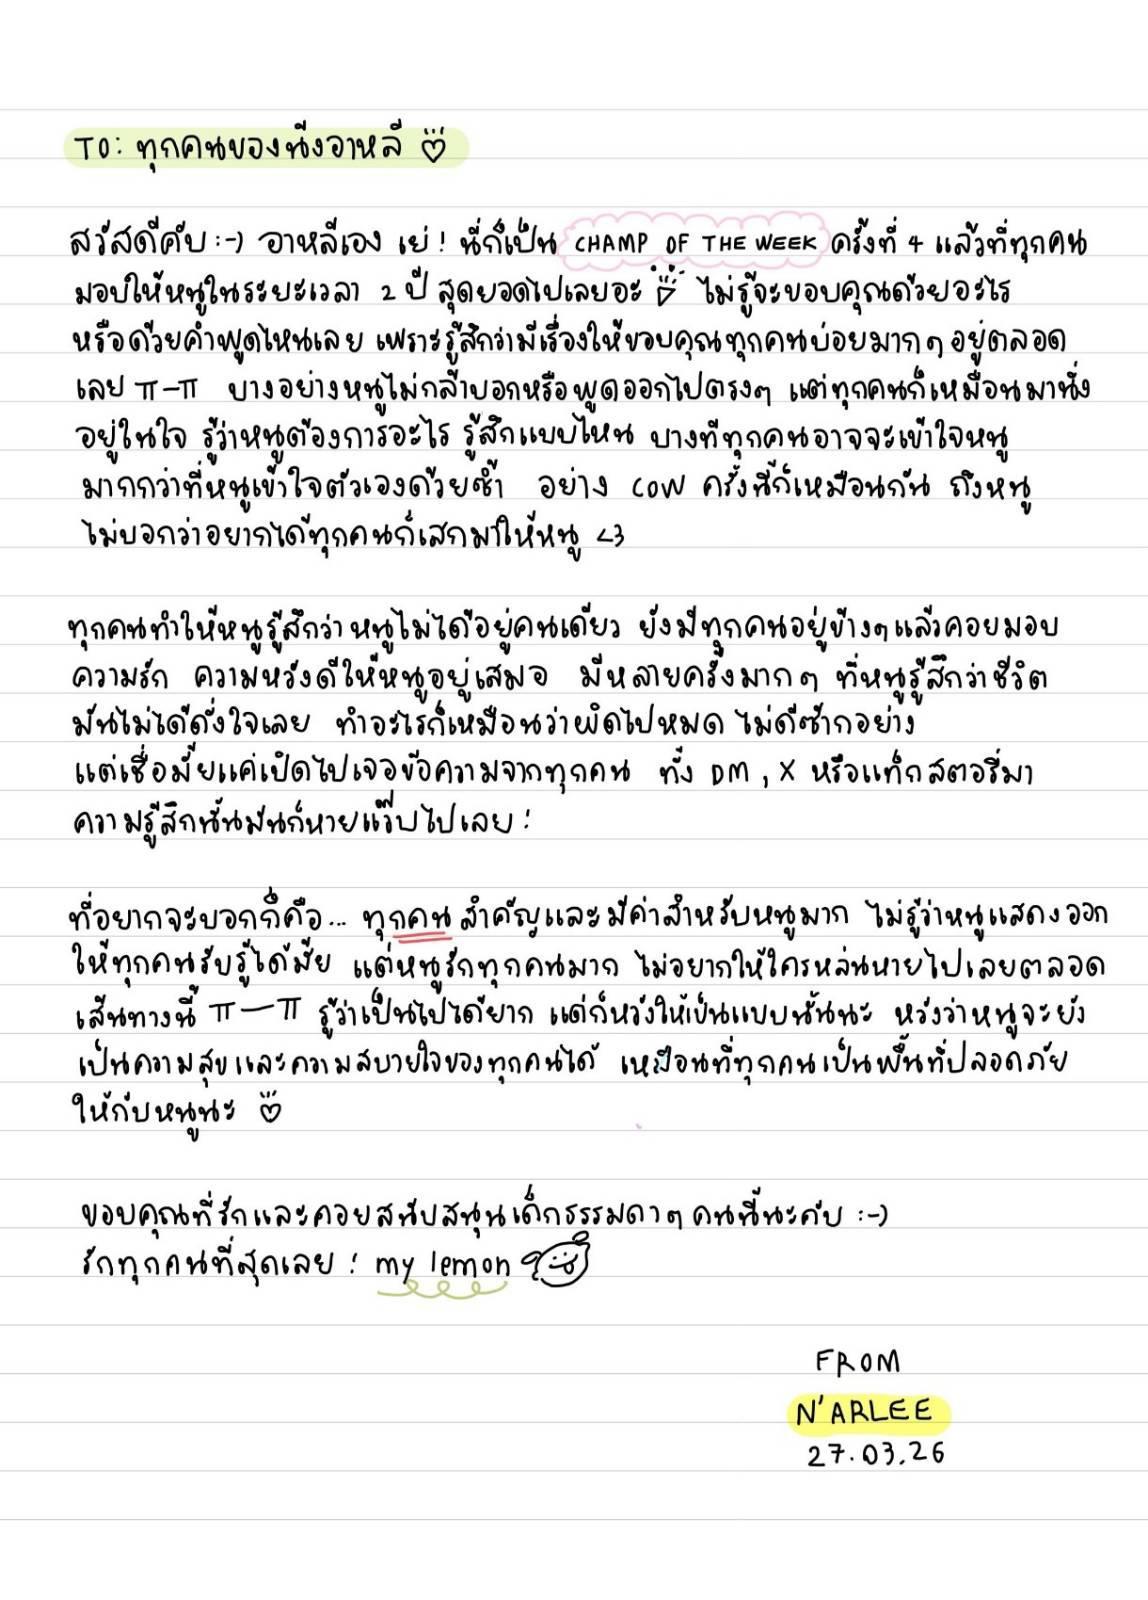 TO: ทุกคนของน้งอาหลี
สวัสดีคับ :-) อาหลีเอง เย่ ! นี่ก็เป็น CHAMP OF THE WEEK ครั้งที่ 4 แล้วที่ทุกคน
มอบให้หนูในระยะเวลา 2 ปี สุดยอดไปเลยอะ ไม่รู้จะขอบคุณด้วยอะไร
หรือด้วยคำพูดไหนเลย เพราะรู้สึกว่ามีเรื่องให้ขอบคุณทุกคนบ่อยมากๆ อยู่ตลอด
เลย π-π บางอย่างหนูไม่กล้าบอกหรือพูดออกไปตรงๆ แต่ทุกคนก็เหมือนมานั่ง
อยู่ในใจ รู้ว่าหนูต้องการอะไร รู้สึกแบบไหน บางทีทุกคนอาจจะเข้าใจหนู
มากกว่าที่หนูเข้าใจตัวเองด้วยซ้ำ อย่าง COW ครั้งนี้ก็เหมือนกัน ถึงหนู
ไม่บอกว่าอยากได้ทุกคนก็เสกมาให้หนู <3
ทุกคนทำให้หนูรู้สึกว่า หนูไม่ได้อยู่คนเดียว ยังมีทุกคนอยู่ข้างๆ แล้วคอยมอบ
ความรัก ความหวังดีให้หนูอยู่เสมอ มีหลายครั้งมากๆ ที่หนูรู้สึกว่าชีวิต
มันไม่ได้ดั่งใจเลย ทำอะไรก็เหมือนว่าผิดไปหมด ไม่ดีซักอย่าง
แต่เชื่อมั้ยแค่เปิดไปเจอข้อความจากทุกคน ทั้ง DM , X หรือแท็กสตอรี่มา
ความรู้สึกนั้นมันก็หายแว๊บไปเลย !
ที่อยากจะบอกก็คือ... ทุกคน สำคัญและมีค่าสำหรับหนูมาก ไม่รู้ว่าหนูแสดงออก
ให้ทุกคนรับรู้ได้มั้ย แต่หนูรักทุกคนมาก ไม่อยากให้ใครหล่นหายไปเลยตลอด
เส้นทางนี้ π—π รู้ว่าเป็นไปได้ยาก แต่ก็หวังให้เป็นแบบนั้นนะ หวังว่าหนูจะยัง
เป็นความสุขและความสบายใจของทุกคนได้ เหมือนที่ทุกคนเป็นพื้นที่ปลอดภัย
ให้กับหนูนะ
ขอบคุณที่รักและคอยสนับสนุนเด็กธรรมดาๆ คนนี้นะคับ :-)
รักทุกคนที่สุดเลย ! my lemon
FROM
N'ARLEE
27.03.26